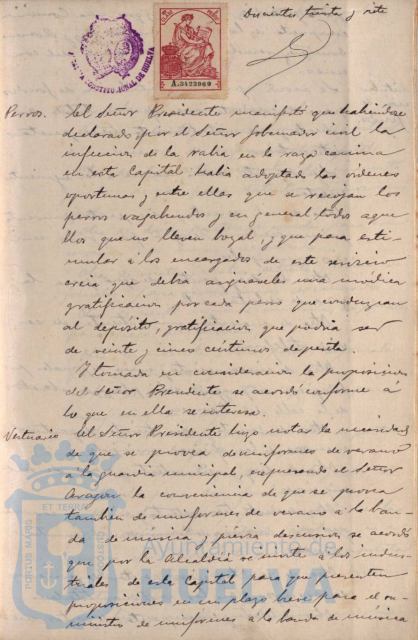 Doscientos treinta y siete
A.3423969
Perros. El Señor Presidente manifestó que habiendose
declarado por el Señor Gobernador civil la
infeccion de la rabia en la raza canina
en esta Capital habia adoptado las órdenes
oportunas y entre ellas que se recojan los
perros vagabundos y en general todos aque
llos que no lleven bozal, y que para esti-
mular á los encargados de este servicio
creia que debia asignarseles una módica
gratificacion por cada perro que conduzcan
al depósito, gratificacion que podria ser
de veinte y cinco centimos de peseta.
Y tomada en consideracion la proposicion
del Señor Presidente se acordó conforme á
lo que en ella se interesa.
Vestuario El Señor Presidente hizo notar la necesidad
de que se provea de uniformes de verano
á la guardia municipal, expresando el Señor
Aragon la conveniencia de que se provea
tambien de uniformes de verano á la ban-
da de musica, y previa discusion se acordó
que por la Alcaldia se invite á los indus-
triales de esta Capital para que presenten
proposiciones en un plazo breve para el su-
ministro de uniformes á la banda de música
PORTUS MARIS ET TERRAE CUSTODIA
Ayuntamiento de
HUELVA